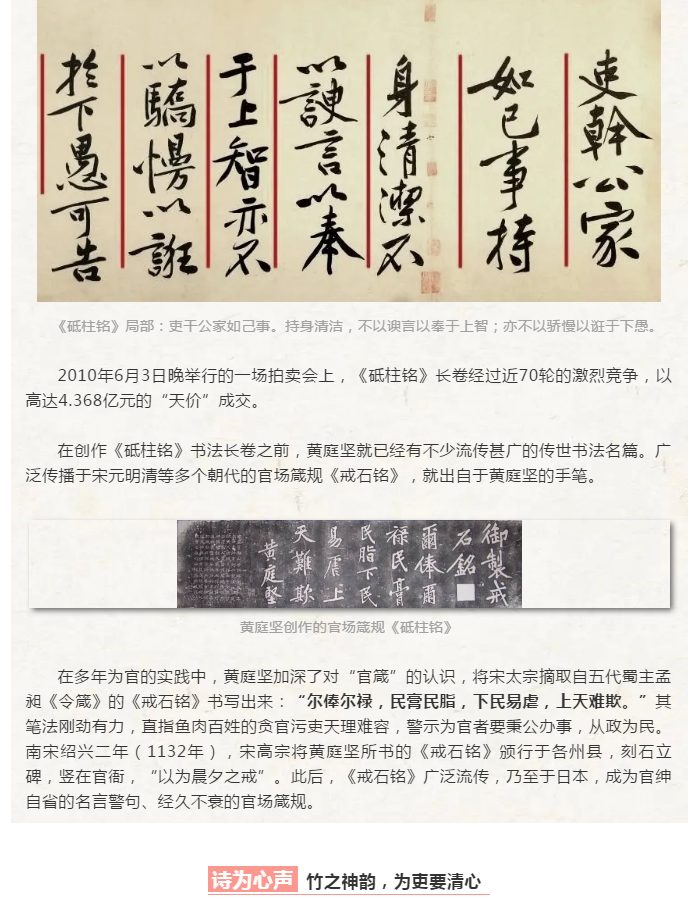 吏幹公家
如己事持
身清潔不
以諛言以奉
于上智亦不
以驕慢以誑
於下愚可告
《砥柱铭》局部：吏干公家如己事。持身清洁，不以谀言以奉于上智；亦不以骄慢以诳于下愚。
2010年6月3日晚举行的一场拍卖会上，《砥柱铭》长卷经过近70轮的激烈竞争，以
高达4.368亿元的“天价”成交。
在创作《砥柱铭》书法长卷之前，黄庭坚就已经有不少流传甚广的传世书法名篇。广
泛传播于宋元明清等多个朝代的官场箴规《戒石铭》，就出自于黄庭坚的手笔。
御製戒
石銘
爾俸爾
禄民膏
民脂下民
易虐上
天難欺
黄庭堅
黄庭坚创作的官场箴规《砥柱铭》
在多年为官的实践中，黄庭坚加深了对“官箴”的认识，将宋太宗摘取自五代蜀主孟
昶《令箴》的《戒石铭》书写出来：“尔俸尔禄，民膏民脂，下民易虐，上天难欺。”其
笔法刚劲有力，直指鱼肉百姓的贪官污吏天理难容，警示为官者要秉公办事，从政为民。
南宋绍兴二年（1132年），宋高宗将黄庭坚所书的《戒石铭》颁行于各州县，刻石立
碑，竖在官衙，“以为晨夕之戒”。此后，《戒石铭》广泛流传，乃至于日本，成为官绅
自省的名言警句、经久不衰的官场箴规。
诗为心声 竹之神韵，为吏要清心